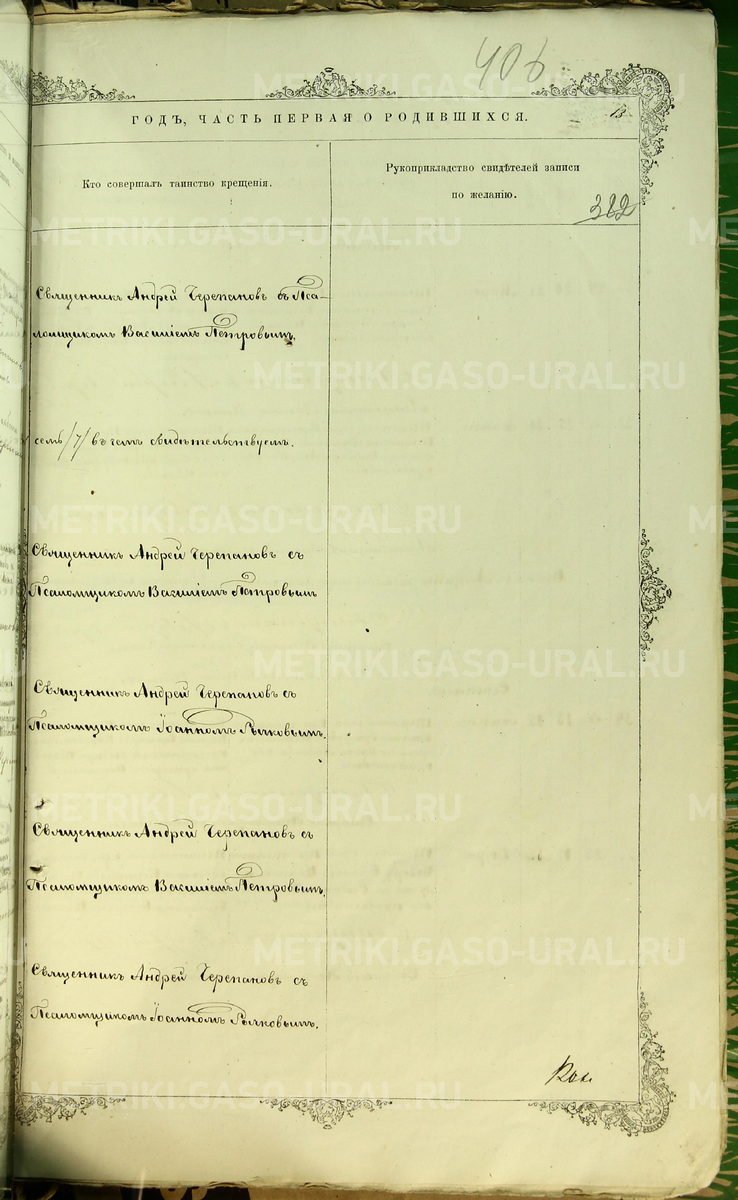 406
ГОДЪ, ЧАСТЬ ПЕРВАЯ О РОДИВШИХСЯ.
13
Кто совершалъ таинство крещенія.
Рукоприкладство свидѣтелей записи
по желанію.
322
Священникъ Андрей Черепановъ съ Пса-
ломщикомъ Василіемъ Петровымъ.
семь /7/ въ чемъ свидѣтельствуемъ.
Священникъ Андрей Черепановъ съ
Псаломщикомъ Василіемъ Петровымъ
Священникъ Андрей Черепановъ съ
Псаломщикомъ Іоанномъ Рычковымъ.
Священникъ Андрей Черепановъ съ
Псаломщикомъ Василіемъ Петровымъ.
Священникъ Андрей Черепановъ съ
Псаломщикомъ Іоанномъ Рычковымъ.
METRIKI.GASO-URAL.RU